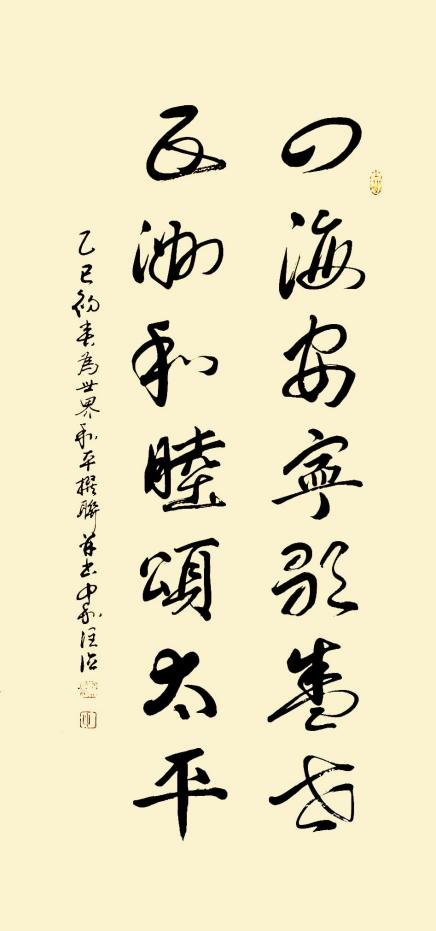 四海安寧歌盛世
五洲和睦頌太平
乙巳初春為世界和平撰聯並书中和